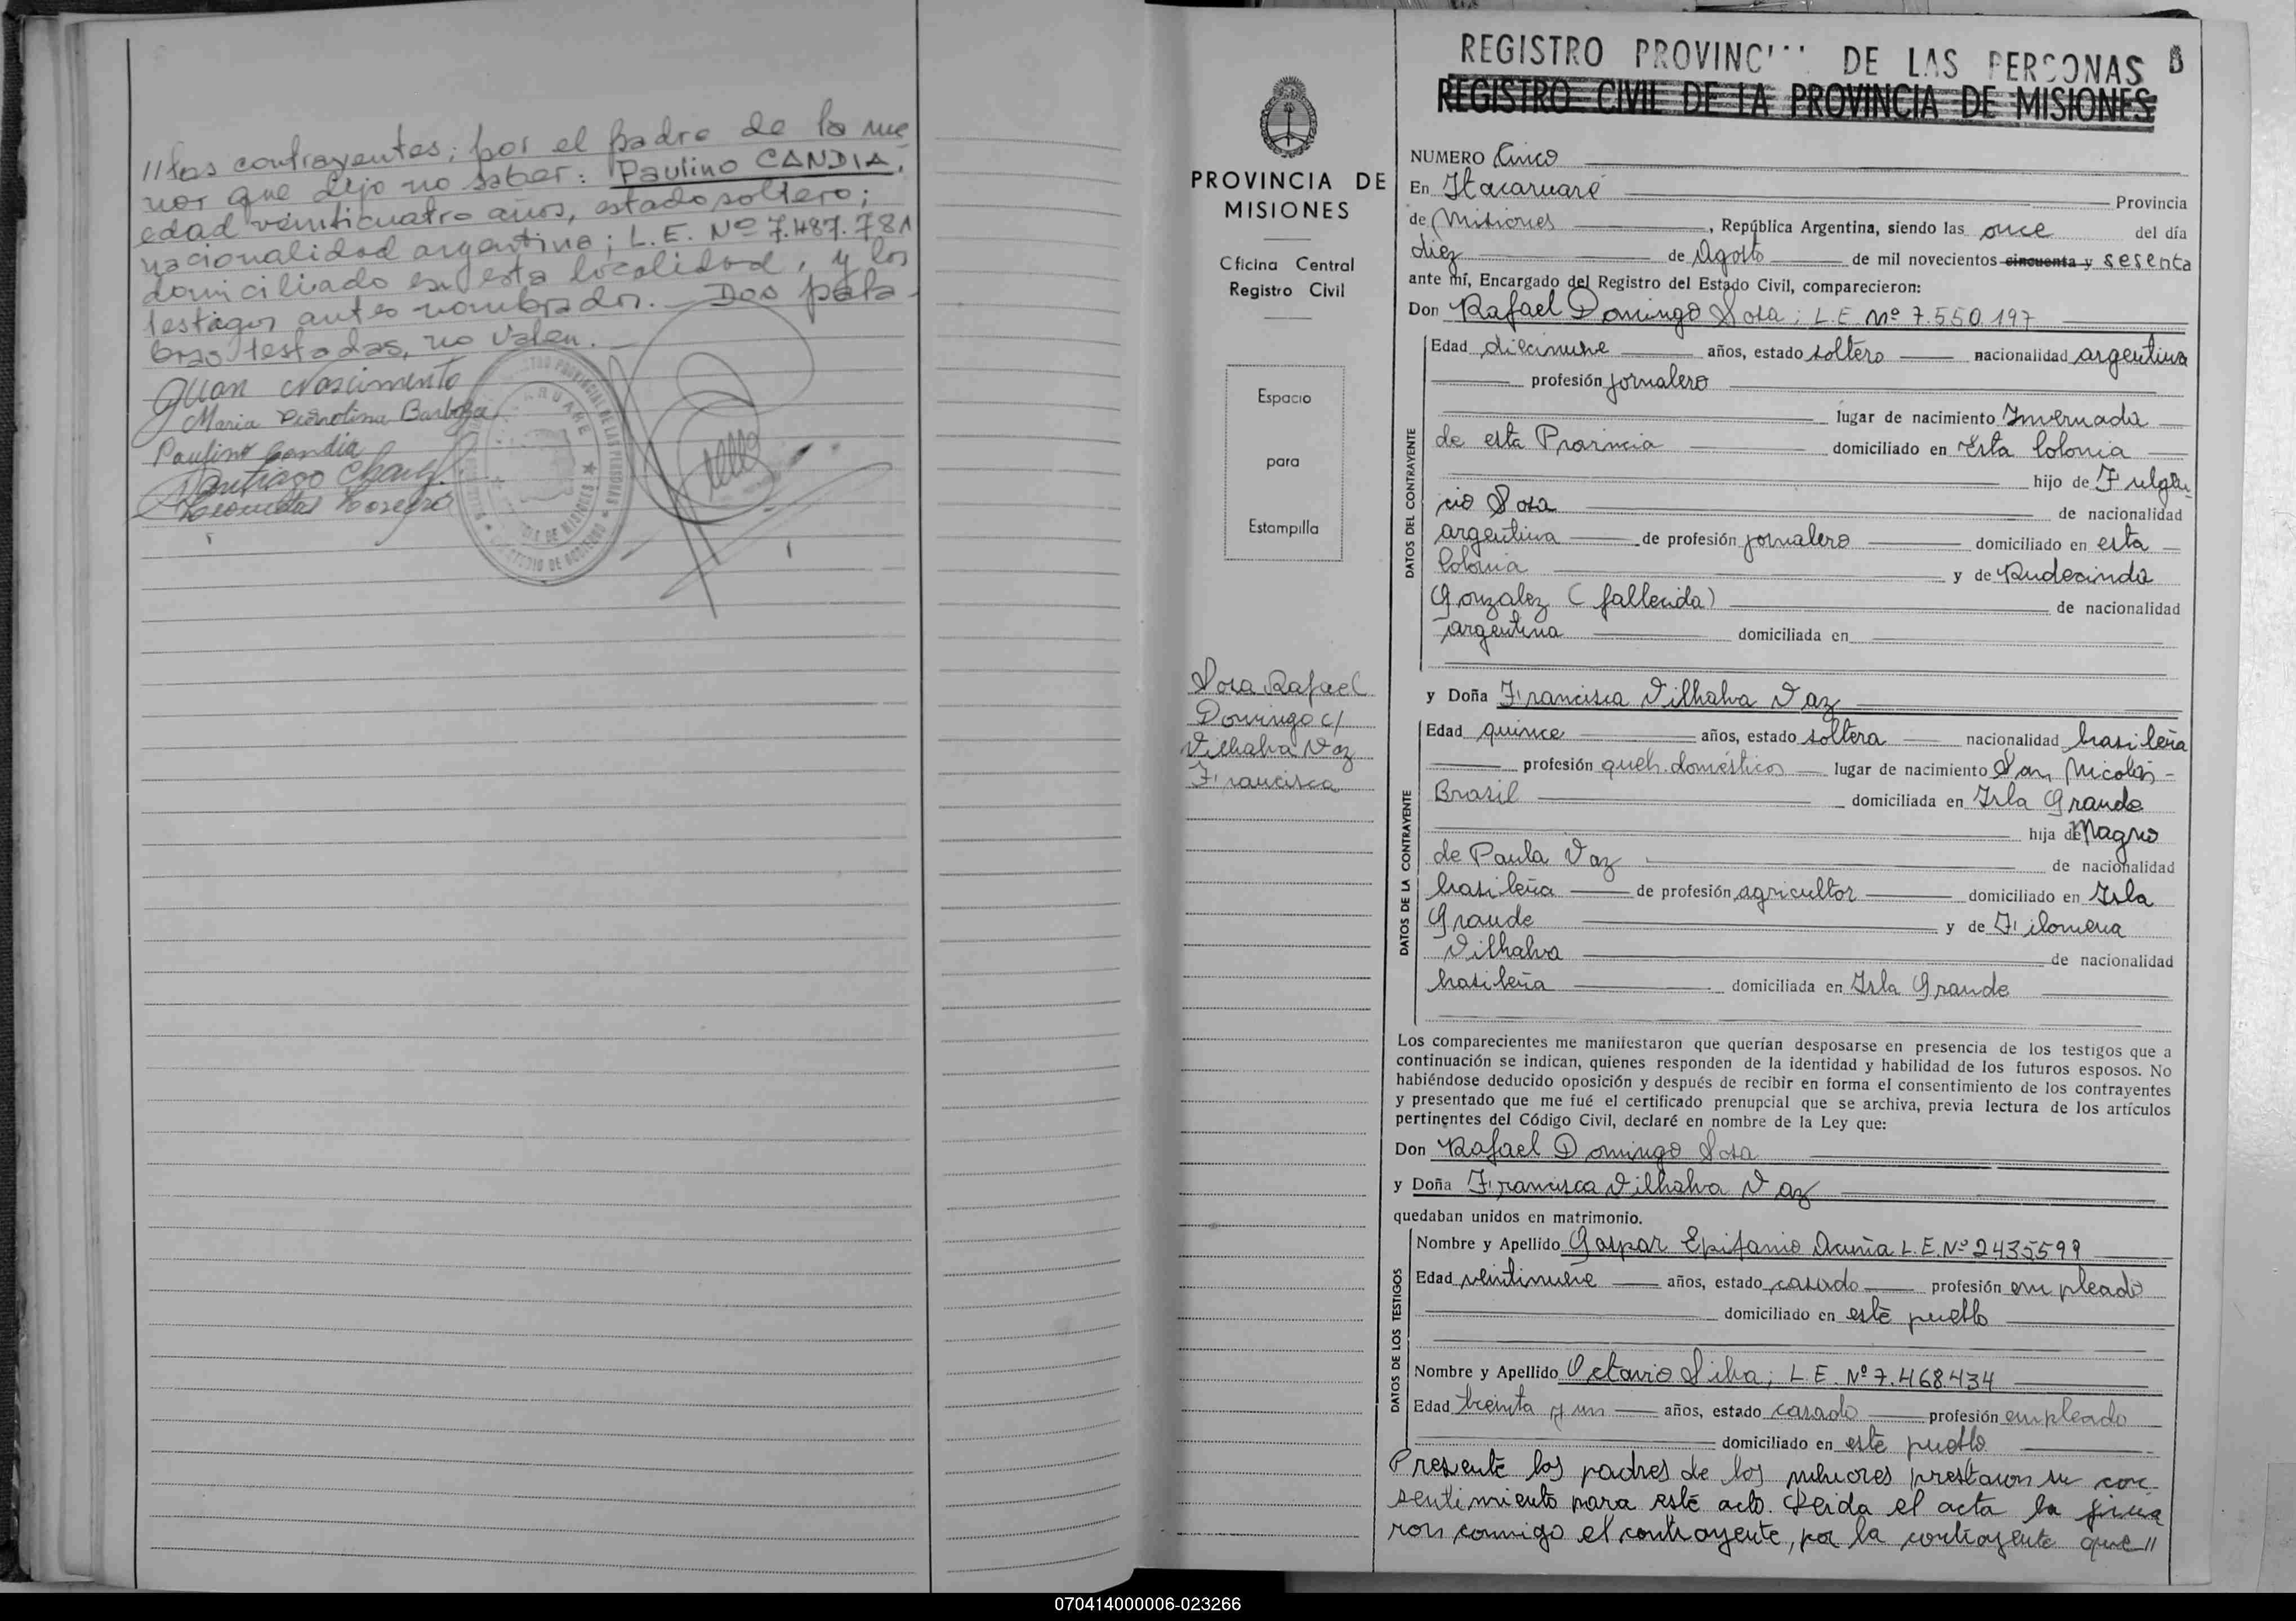 //los contrayentes; por el padre de la me
nor que dijo no saber: Paulino CANDIA,
edad veinticuatro años, estado soltero;
nacionalidad argentina; L.E. Nº 7.487.781
domiciliado en esta localidad, y los
testigos antes nombrados. — Dos pala-
bras testadas, no valen. —
Juan Nascimento
Maria Barboza
Paulino Candia
Santiago Chavez
PROVINCIA DE
MISIONES
Oficina Central
Registro Civil
Espacio
para
Estampilla
Sosa Rafael
Domingo c/
Vilhalva Vaz
Francisca
REGISTRO PROVINC DE LAS PERSONAS
REGISTRO CIVIL DE LA PROVINCIA DE MISIONES
NUMERO Cinco
En Itacaruaré Provincia
de Misiones, República Argentina, siendo las once del día
diez de Agosto de mil novecientos cincuenta y sesenta
ante mí, Encargado del Registro del Estado Civil, comparecieron:
Don Rafael Domingo Sosa; L.E. Nº 7.550.197
DATOS DEL CONTRAYENTE
Edad diecinueve años, estado soltero nacionalidad argentina
profesión jornalero
lugar de nacimiento Invernada
de esta Provincia domiciliado en Esta Colonia
hijo de Fulgen-
cio Sosa de nacionalidad
argentina de profesión jornalero domiciliado en esta
Colonia y de Rudecinda
Gonzalez (fallecida) de nacionalidad
argentina domiciliada en
y Doña Francisca Vilhalva Vaz
DATOS DE LA CONTRAYENTE
Edad quince años, estado soltera nacionalidad brasileña
profesión queh. domésticos lugar de nacimiento San Nicolás-
Brasil domiciliada en Isla Grande
hija de Magno
de Paula Vaz de nacionalidad
brasileña de profesión agricultor domiciliado en Isla
Grande y de Filomena
Vilhalva de nacionalidad
brasileña domiciliada en Isla Grande
Los comparecientes me manifestaron que querían desposarse en presencia de los testigos que a
continuación se indican, quienes responden de la identidad y habilidad de los futuros esposos. No
habiéndose deducido oposición y después de recibir en forma el consentimiento de los contrayentes
y presentado que me fué el certificado prenupcial que se archiva, previa lectura de los artículos
pertinentes del Código Civil, declaré en nombre de la Ley que:
Don Rafael Domingo Sosa
y Doña Francisca Vilhalva Vaz
quedaban unidos en matrimonio.
DATOS DE LOS TESTIGOS
Nombre y Apellido Gaspar Epifanio Acuña L.E. Nº 2435599
Edad veintinueve años, estado casado profesión empleado
domiciliado en este pueblo
Nombre y Apellido Octavio Silva; L.E. Nº 7.468.434
Edad treinta y un años, estado casado profesión empleado
domiciliado en este pueblo
Presente los padres de los menores prestaron su con-
sentimiento para este acto. Leida el acta la firma
ron conmigo el contrayente, por la contrayente que //
070414000006-023266